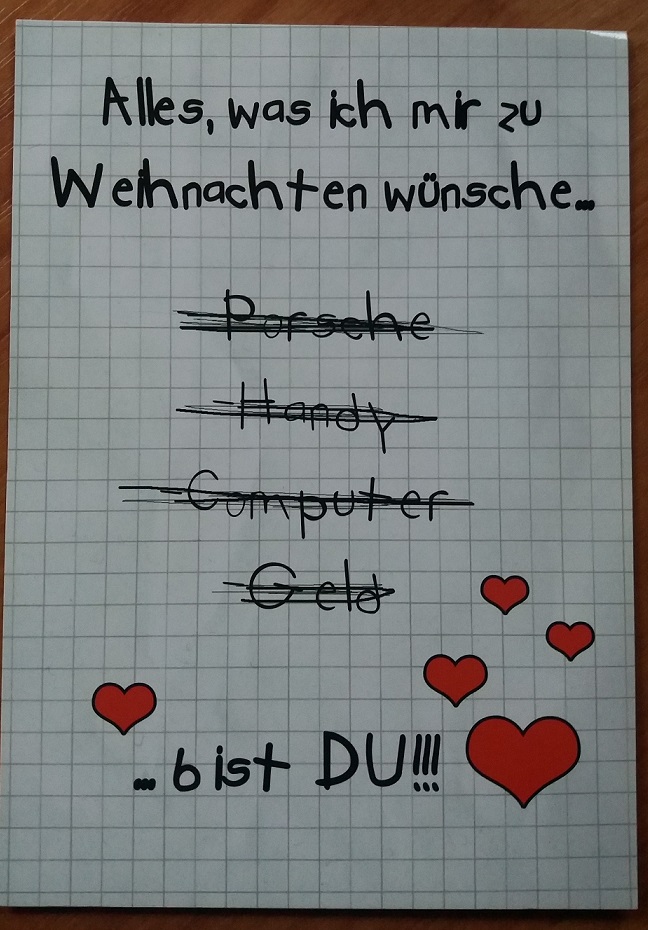 Alles, was ich mir zu
Weihnachten wünsche...
Porsche
Handy
Computer
Geld
... bist DU!!!